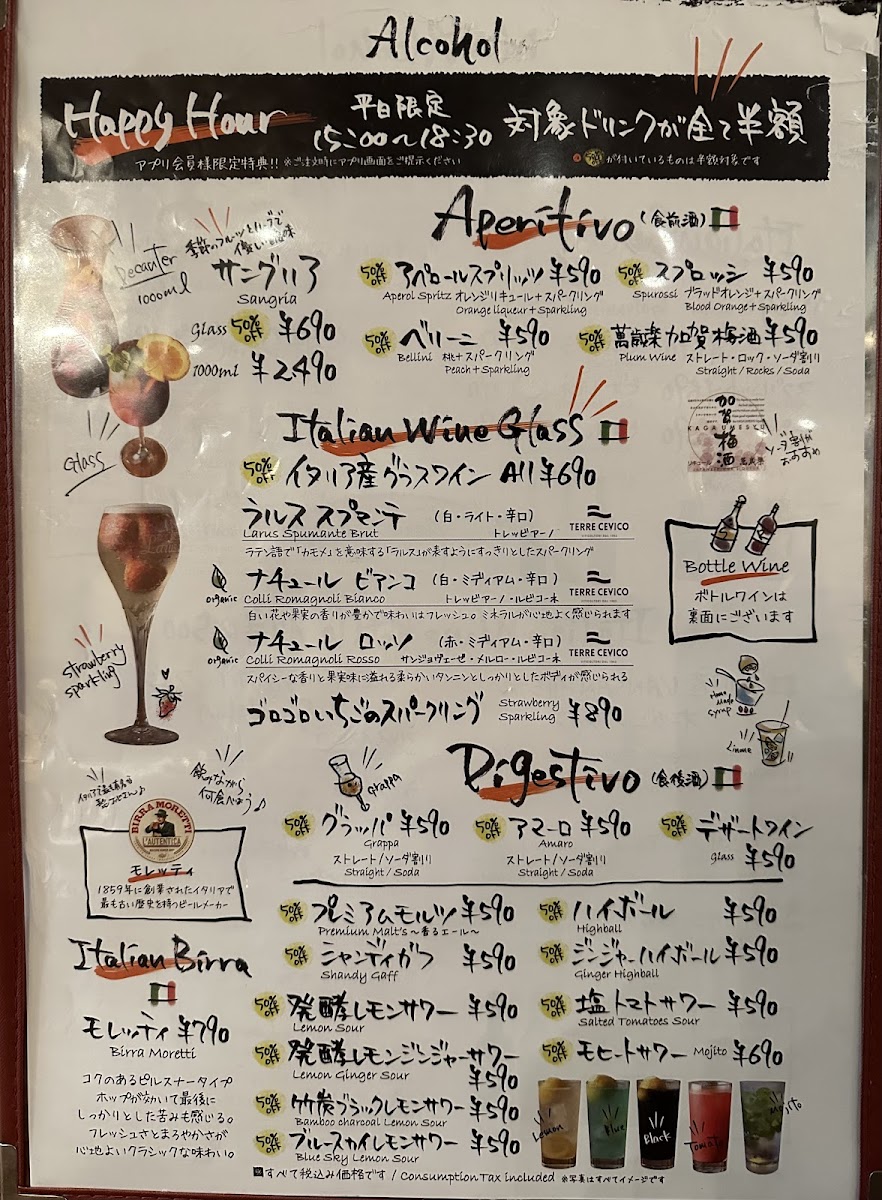 Alcohol
Happy Hour
平日限定
15:00~18:30
対象ドリンクが全て半額
アプリ会員様限定特典!! ※ご注文時にアプリ画面をご提示ください
※50% OFFが付いているものは半額対象です
Decanter
1000ml
季節のフルーツとハーブで
優しい風味
サングリア
Sangria
Glass 50% OFF ¥690
1000ml ¥2,490
Glass
Aperitivo (食前酒)
50% OFF アペロールスプリッツ ¥590
Aperol Spritz オレンジリキュール+スパークリング
Orange liqueur + Sparkling
50% OFF スプロッシ ¥590
Spurossi ブラッドオレンジ+スパークリング
Blood Orange + Sparkling
50% OFF ベリーニ ¥590
Bellini 桃+スパークリング
Peach + Sparkling
50% OFF 萬歳楽 加賀梅酒 ¥590
Plum Wine ストレート・ロック・ソーダ割り
Straight / Rocks / Soda
加賀梅酒
KAGAUMESHU
ソーダ割が
おすすめ
Italian Wine Glass
50% OFF イタリア産グラスワイン All ¥690
ラルス スプマンテ (白・ライト・辛口)
Larus Spumante Brut トレッビアーノ
TERRE CEVICO
ラテン語で「カモメ」を意味する「ラルス」が表すようにすっきりとしたスパークリング
organic
ナチュール ビアンコ (白・ミディアム・辛口)
Colli Romagnoli Bianco トレッビアーノ・ルビコーネ
TERRE CEVICO
白い花や果実の香りが豊かで味わいはフレッシュ。ミネラルが心地よく感じられます
organic
ナチュール ロッソ (赤・ミディアム・辛口)
Colli Romagnoli Rosso サンジョヴェーゼ・メルロー・ルビコーネ
TERRE CEVICO
スパイシーな香りと果実味に溢れる柔らかいタンニンとしっかりとしたボディが感じられる
ゴロゴロいちごのスパークリング
Strawberry
Sparkling
¥890
strawberry
sparkling
Bottle Wine
ボトルワインは
裏面にございます
Home
Made
Syrup
Digestivo (食後酒)
Grappa
50% OFF グラッパ ¥590
Grappa
ストレート/ソーダ割り
Straight / Soda
50% OFF アマーロ ¥590
Amaro
ストレート/ソーダ割り
Straight / Soda
50% OFF デザートワイン
Glass ¥590
飲みながら
何食べよう♪
BIRRA MORETTI
L'AUTENTICA
モレッティ
1859年に創業されたイタリアで
最も古い歴史を持つビールメーカー
Italian Birra
モレッティ ¥790
Birra Moretti
コクのあるピルスナータイプ
ホップが効いて最後に
しっかりとした苦みも感じる。
フレッシュさとまろやかさが
心地よいクラシックな味わい。
50% OFF プレミアムモルツ ¥590
Premium Malt's ~香るエール~
50% OFF シャンディガフ ¥590
Shandy Gaff
50% OFF 発酵レモンサワー ¥590
Lemon Sour
50% OFF 発酵レモンジンジャーサワー
Lemon Ginger Sour ¥590
50% OFF 竹炭ブラックレモンサワー ¥590
Bamboo charcoal Lemon Sour
50% OFF ブルースカイレモンサワー ¥590
Blue Sky Lemon Sour
50% OFF ハイボール ¥590
Highball
50% OFF ジンジャーハイボール ¥590
Ginger Highball
50% OFF 塩トマトサワー ¥590
Salted Tomatoes Sour
50% OFF モヒートサワー Mojito ¥690
Lemon
Blue
Black
Tomato
Mojito
※すべて税込み価格です / Consumption Tax included ※写真はすべてイメージです